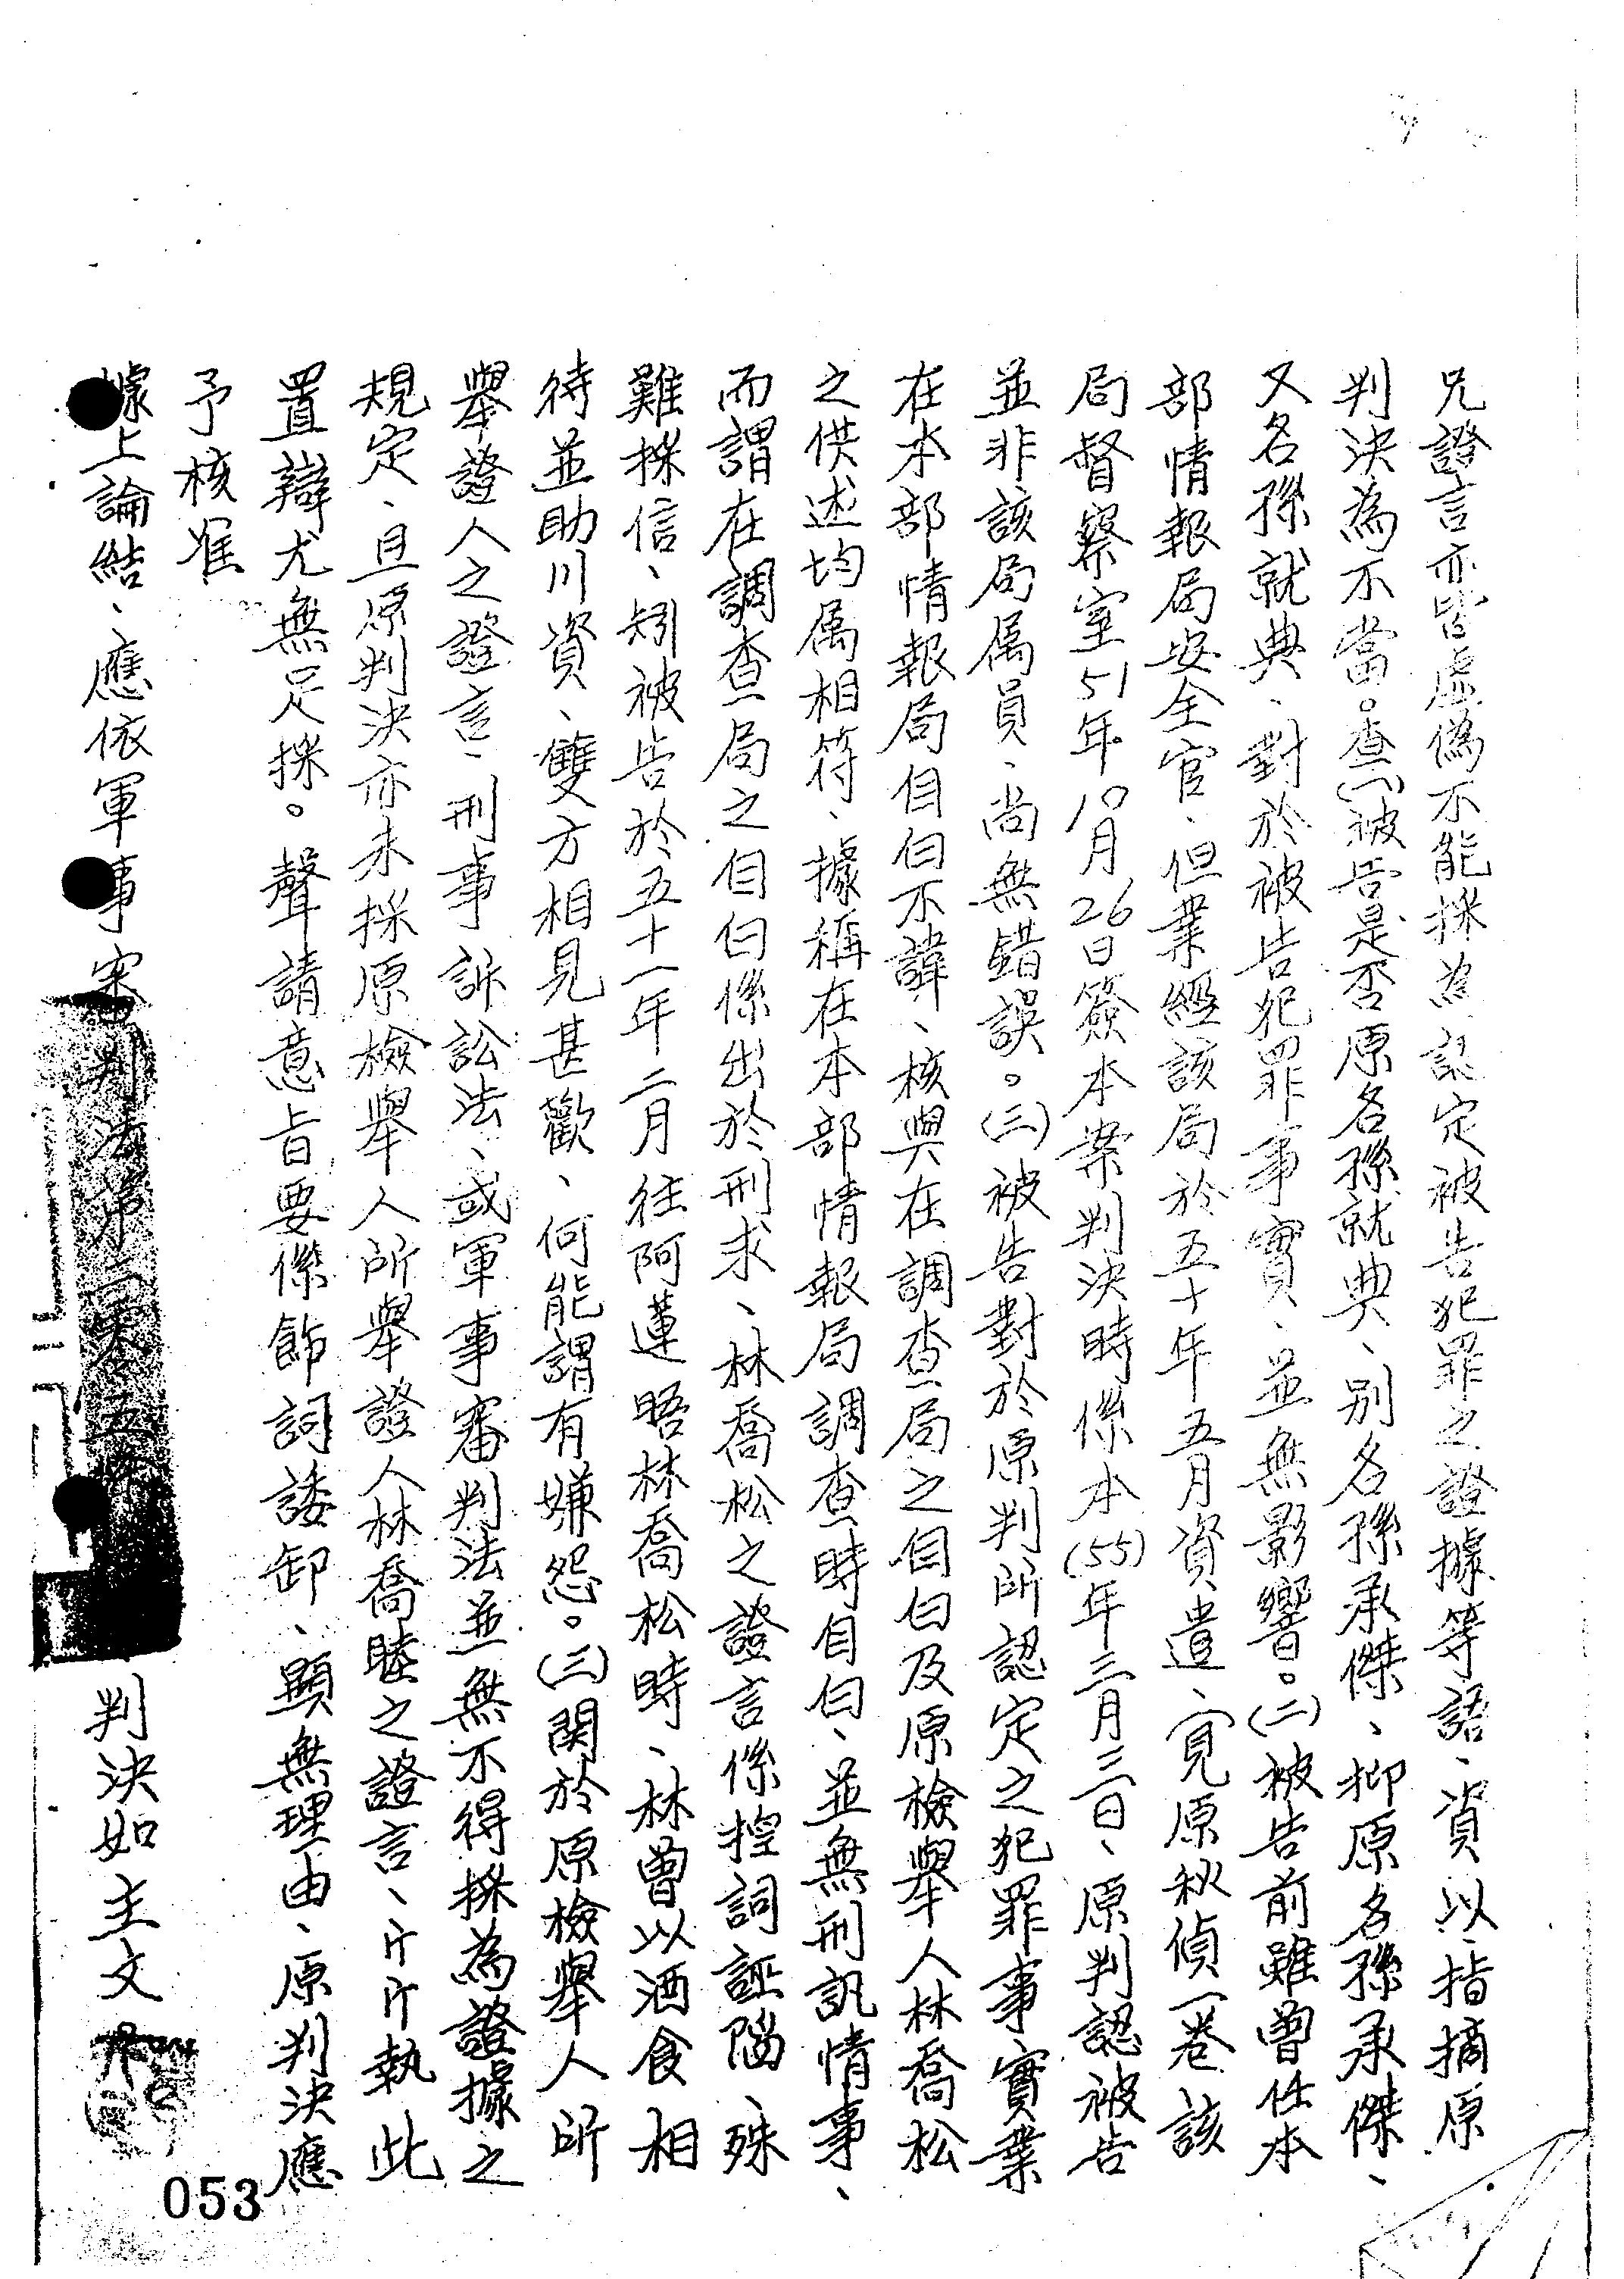 兄證言亦皆虛偽不能採為認定被告犯罪之證據等語、資以指摘原
判決為不當。查(一)被告是否原名孫就典、別名孫承傑、抑原名孫承傑、
又名孫就典、對於被告犯罪事實、並無影響。(二)被告前雖曾任本
部情報局安全官、但業經該局於五十年五月資遣、有原秋偵一卷該
局督察室51年10月26日簽本案判決時係本(55)年三月三日、原判認被告
並非該局属員、尚無錯誤。(三)被告對於原判所認定之犯罪事實業
在本部情報局自白不諱、核與在調查局之自白及原檢舉人林喬松
之供述均属相符、據稱在本部情報局調查時自白、並無刑訊情事、
而謂在調查局之自白係出於刑求、林喬松之證言係控詞誣陷、殊
難採信、矧被告於五十一年二月往阿蓮晤林喬松時、林曾以酒食相
待並助川資、雙方相見甚歡、何能謂有嫌怨。(三)関於原檢舉人所
舉證人之證言、刑事訴訟法、或軍事審判法並無不得採為證據之
規定、且原判決亦未採原檢舉人所舉證人林喬睦之證言、斤斤執此
置辯尤無足採。聲請意旨要係飾詞諉卸、顯無理由、原判決應
予核准
據上論結、應依軍事審判法第二百零五條 判決如主文
053